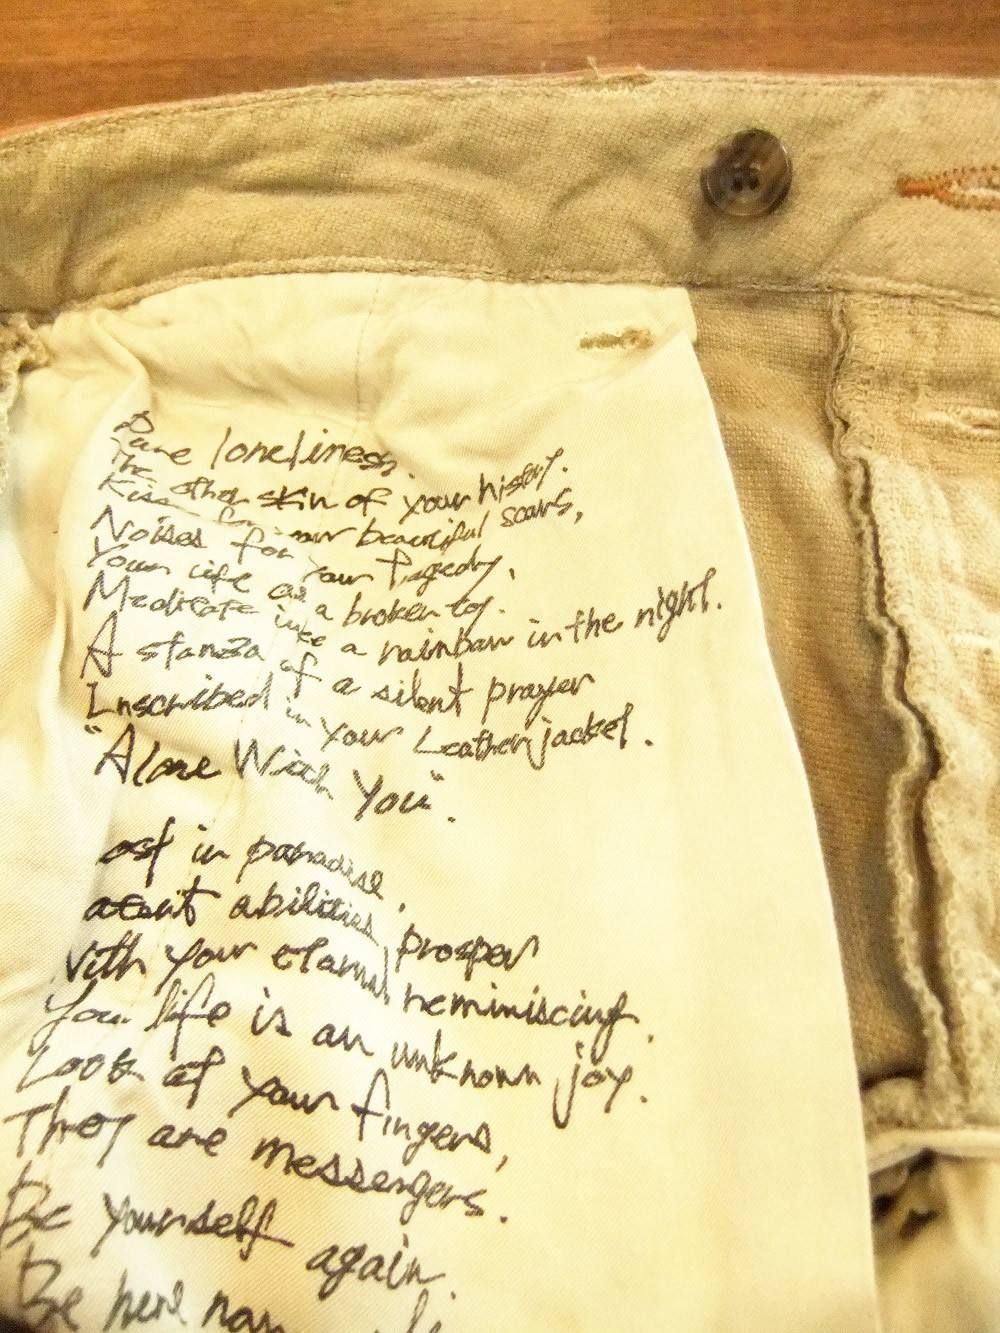 Pure loneliness.
The other skin of your history.
Kiss for your beautiful scars,
Noises for your tragedy,
Your life as a broken toy.
Meditate like a rainbow in the night.
A stanza of a silent prayer
Inscribed in your Leather jacket.
"Alone With You".
ost in paradise,
atent abilities, prosper
With your eternal reminiscing.
You life is an unknown joy.
Look at your fingers,
They are messengers.
Be yourself again.
Be here now